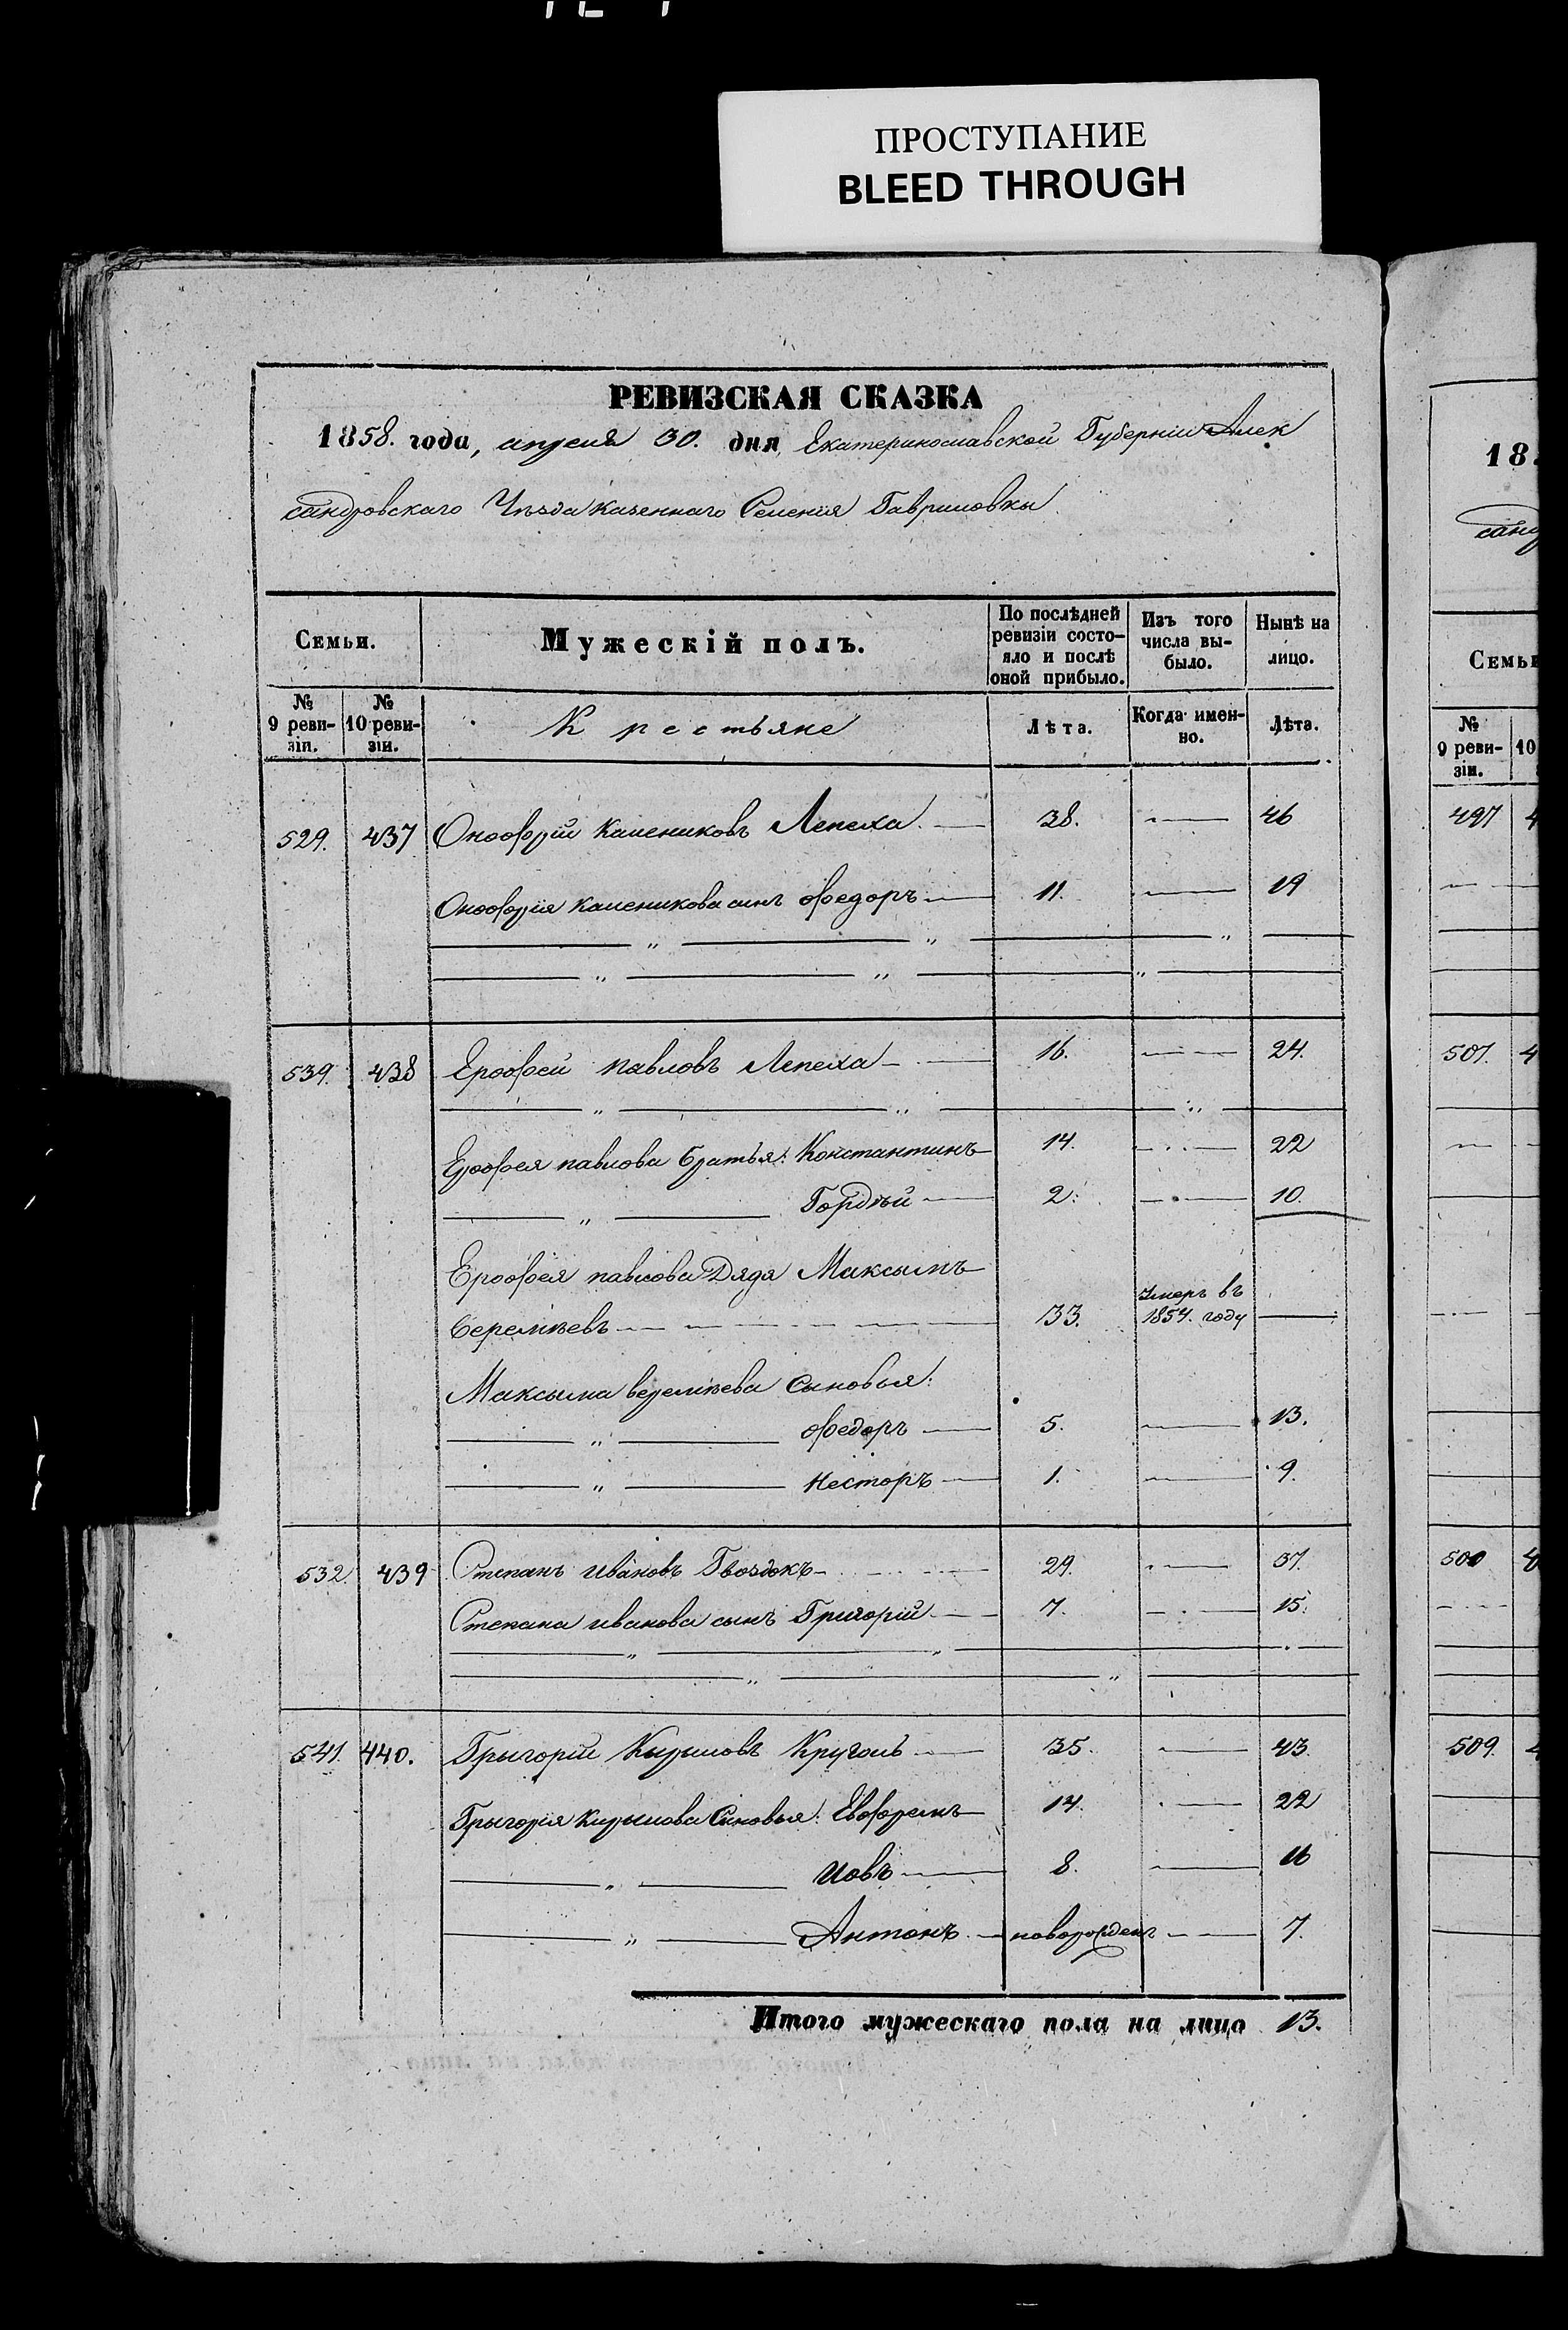 ПРОСТУПАНИЕ
BLEED THROUGH
РЕВИЗСКАЯ СКАЗКА
1858. года, апреля 30. дня, Екатеринославской Губернiи Алек
сандровскаго Уѣзда казеннаго Селенiя Гавриловки
Семьи. Мужескiй полъ. По послѣдней ревизiи состо-яло и послѣ оной прибыло. Изъ того числа вы-было. Нынѣ на лицо.
№ 9 реви-зiи. № 10 реви-зiи. Крестьяне Лѣта. Когда имен-но. Лѣта.
529. 437 Оноофрiй Калениковъ Лепеха 38. 46
Оноофрiя Каленикова синъ Ѳедоръ 11. 19
539. 438 Ероофей павловъ Лепеха 16. 24.
Ероофея павлова братья: Константинъ 14. 22
Гордѣй 2. 10.
Ероофея павлова Дядя Максымъ
Веремѣевъ 33. Умеръ въ 1854. году
Максыма веремѣева Сыновья:
Ѳедоръ 5. 13.
Несторъ 1. 9.
532. 439 Степанъ ивановъ Гвоздокъ 29. 37.
Степана иванова сынъ Григорiй 7. 15.
541. 440. Грыгорiй Кырыловъ Круголь 35. 43.
Грыгорiя Кирылова Сыновья: Евофремъ 14. 22
Иовъ 8. 16
Антонъ новорожденъ 7.
Итого мужескаго пола на лицо 13.
18
санд
Семьи
№ 9 реви-зiи. 10
497 4
501. 4
500
509. 4